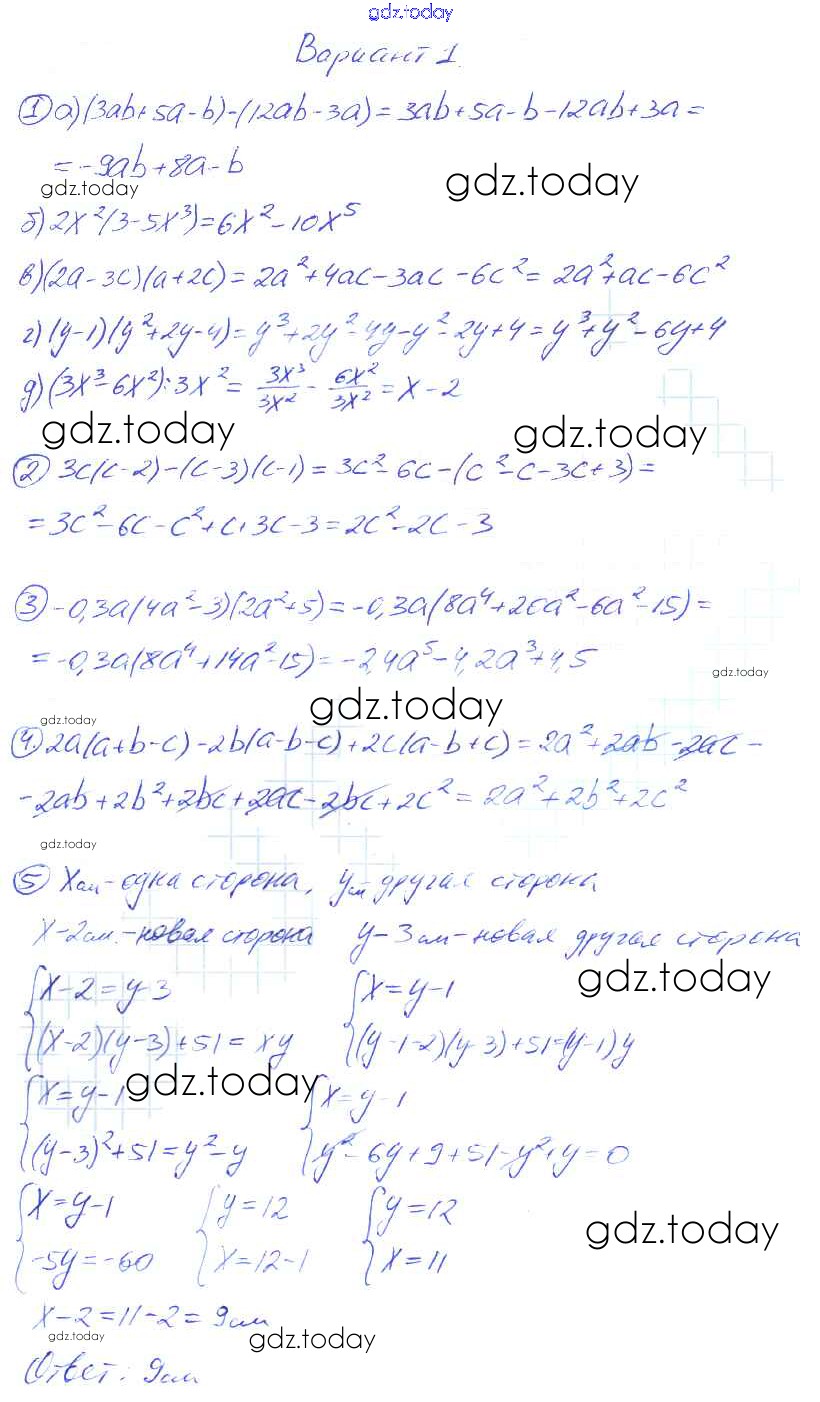 gdz.today
Вариант 1.
① а) (3ab+5a-b)-(12ab-3a)=3ab+5a-b-12ab+3a=
=-9ab+8a-b
gdz.today gdz.today
б) 2x²(3-5x³)=6x²-10x⁵
в) (2a-3c)(a+2c)=2a²+4ac-3ac-6c²=2a²+ac-6c²
г) (y-1)(y²+2y-4)=y³+2y²-4y-y²-2y+4=y³+y²-6y+4
д) (3x³-6x²):3x²= 3x³/3x² - 6x²/3x² =x-2
gdz.today gdz.today
② 3c(c-2)-(c-3)(c-1)=3c²-6c-(c²-c-3c+3)=
=3c²-6c-c²+c+3c-3=2c²-2c-3
③ -0,3a(4a²-3)(2a²+5)=-0,3a(8a⁴+20a²-6a²-15)=
=-0,3a(8a⁴+14a²-15)=-2,4a⁵-4,2a³+4,5
gdz.today
gdz.today gdz.today
④ 2a(a+b-c)-2b(a-b-c)+2c(a-b+c)=2a²+2ab-2ac-
-2ab+2b²+2bc+2ac-2bc+2c²=2a²+2b²+2c²
gdz.today
⑤ Xсм-одна сторона, yсм другая сторона
x-2см.-новая сторона y-3см-новая другая сторона
gdz.today
{x-2=y-3 {x=y-1
{(x-2)(y-3)+51=xy {(y-1-2)(y-3)+51=(y-1)y
gdz.today
{x=y-1 {x=y-1
{(y-3)²+51=y²-y {y²-6y+9+51-y²+y=0
{x=y-1 {y=12 {y=12
gdz.today
{-5y=-60 {x=12-1 {x=11
x-2=11-2=9см
gdz.today gdz.today
Ответ: 9см